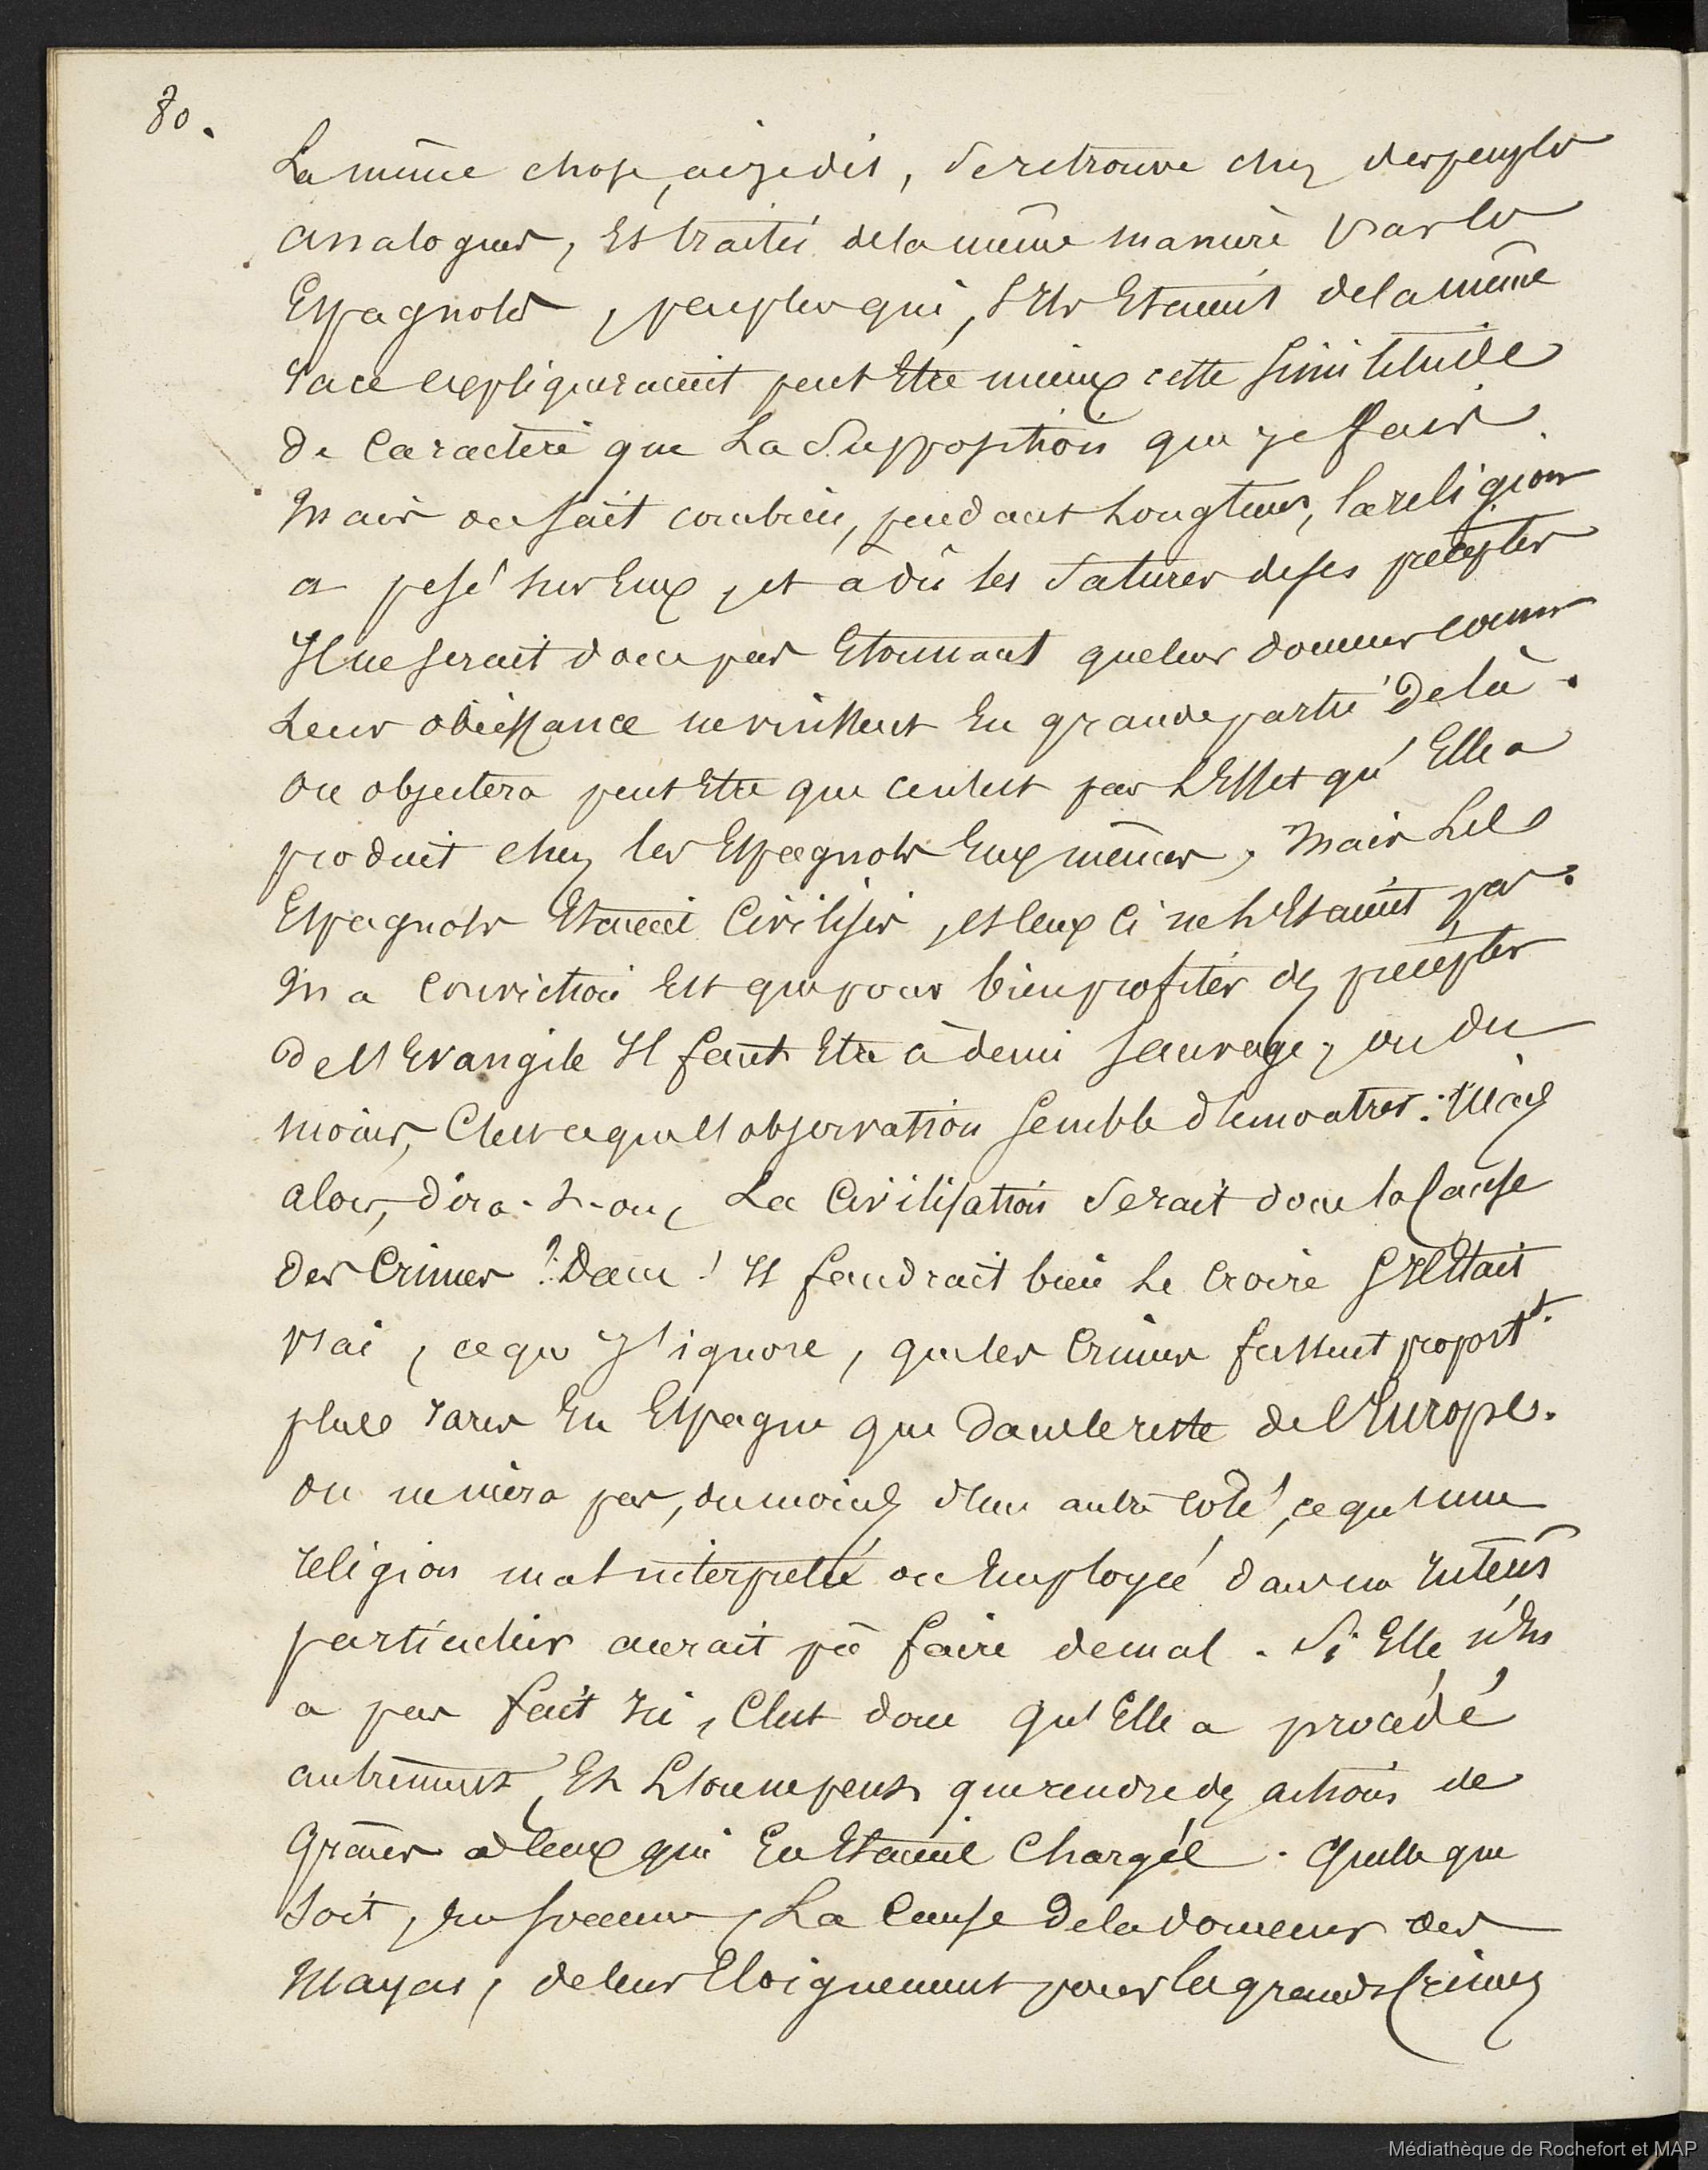 80.
La même chose, ai je dit, se retrouve chez des peuples
analogues, et traités de la même manière par les
Espagnols, peuples qui, s'ils étaient de la même
race expliqueraient peut être mieux cette similitude
de caractère que la supposition que je fais.
Mais on sait combien, pendant longtems, la religion
a pesé sur eux, et a dû les saturer de ses préceptes
Il ne serait donc pas étonnant que leur douceur comme
leur obéissance ne vinssent en grande partie de là.
On objectera peut être que ce n'est pas l'effet qu'elle a
produit chez les Espagnols eux mêmes, mais les
Espagnols étaient civilisés, et ceux ci ne l'étaient pas.
Ma conviction est que pour bien profiter des préceptes
de l'Evangile il faut être à demi sauvage, ou du
moins, c'est ce que l'observation semble démontrer. Mais
alors, dira-t-on, la civilisation serait donc la cause
des crimes? Dam! il faudrait bien le croire s'il était
vrai, ce que j'ignore, que les crimes fussent proportt.
plus rares en Espagne que dans le reste de l'Europe.
on ne niera pas, du moins d'un autre coté, ce qu'une
religion mal interpretée ou employée dans un interêt
particulier aurait pû faire de mal. Si elle n'en
a pas fait ici, c'est donc qu'elle a procédé
autrement, et l'on ne peut que rendre des actions de
graces à ceux qui en étaient chargés. Quelle que
soit, en somme, la cause de la douceur des
Mayas, de leur éloignement pour les grands crimes
Médiathèque de Rochefort et MAP